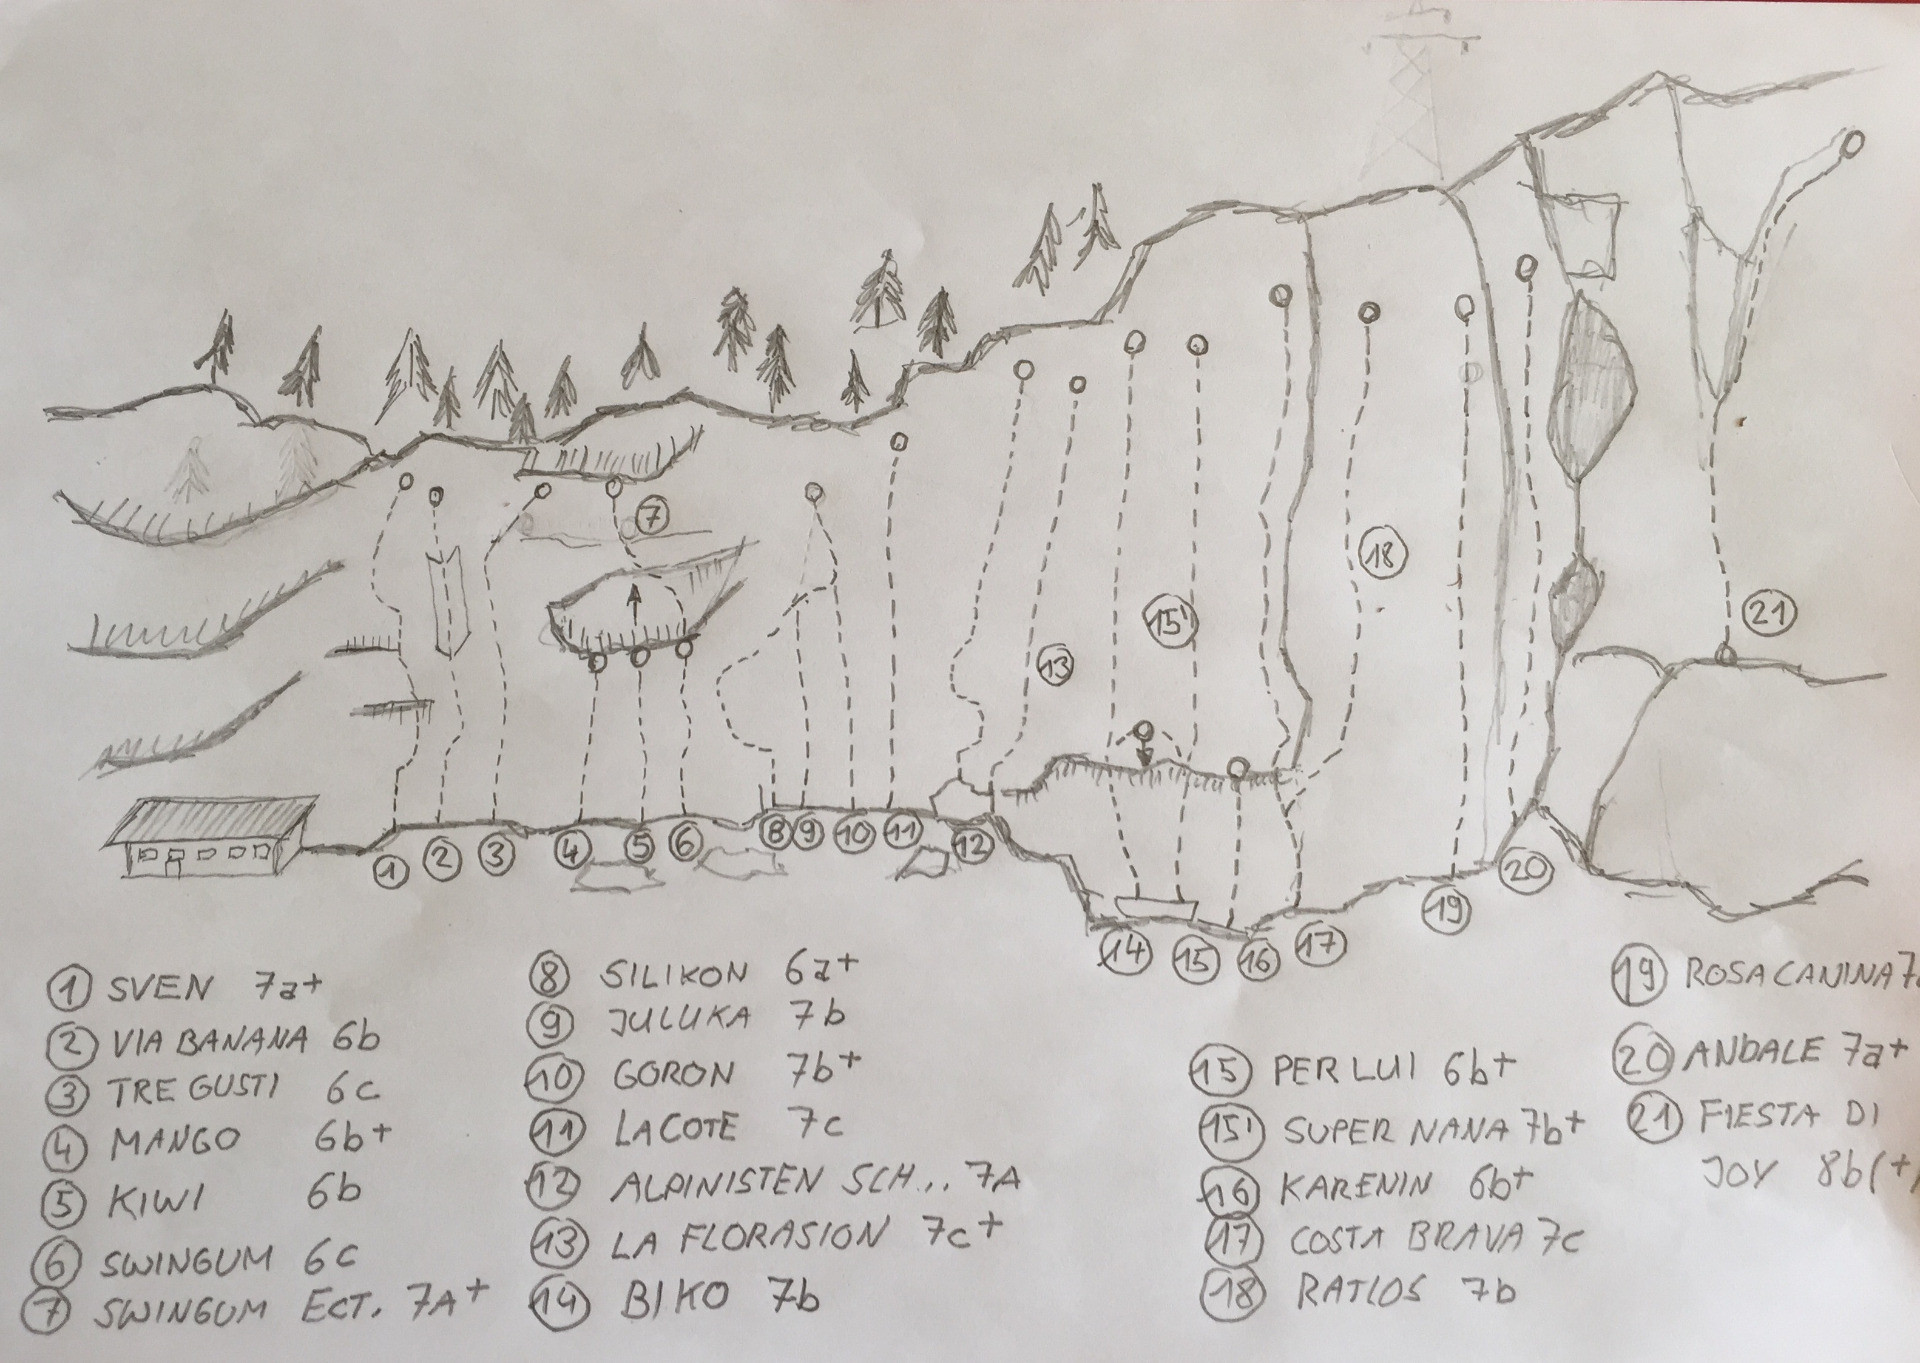 7
18
15'
21
13
1
2
3
4
5
6
8
9
10
11
12
14
15
16
17
19
20
1 SVEN 7a+
2 VIA BANANA 6b
3 TRE GUSTI 6c
4 MANGO 6b+
5 KIWI 6b
6 SWINGUM 6c
7 SWINGUM ECT. 7A+
8 SILIKON 6a+
9 JULUKA 7b
10 GORON 7b+
11 LACOTE 7c
12 ALPINISTEN SCH... 7A
13 LA FLORASION 7c+
14 BIKO 7b
15 PER LUI 6b+
15' SUPER NANA 7b+
16 KARENIN 6b+
17 COSTA BRAVA 7c
18 RATLOS 7b
19 ROSA CANINA
20 ANDALE 7a+
21 FIESTA DI
JOY 8b(+)